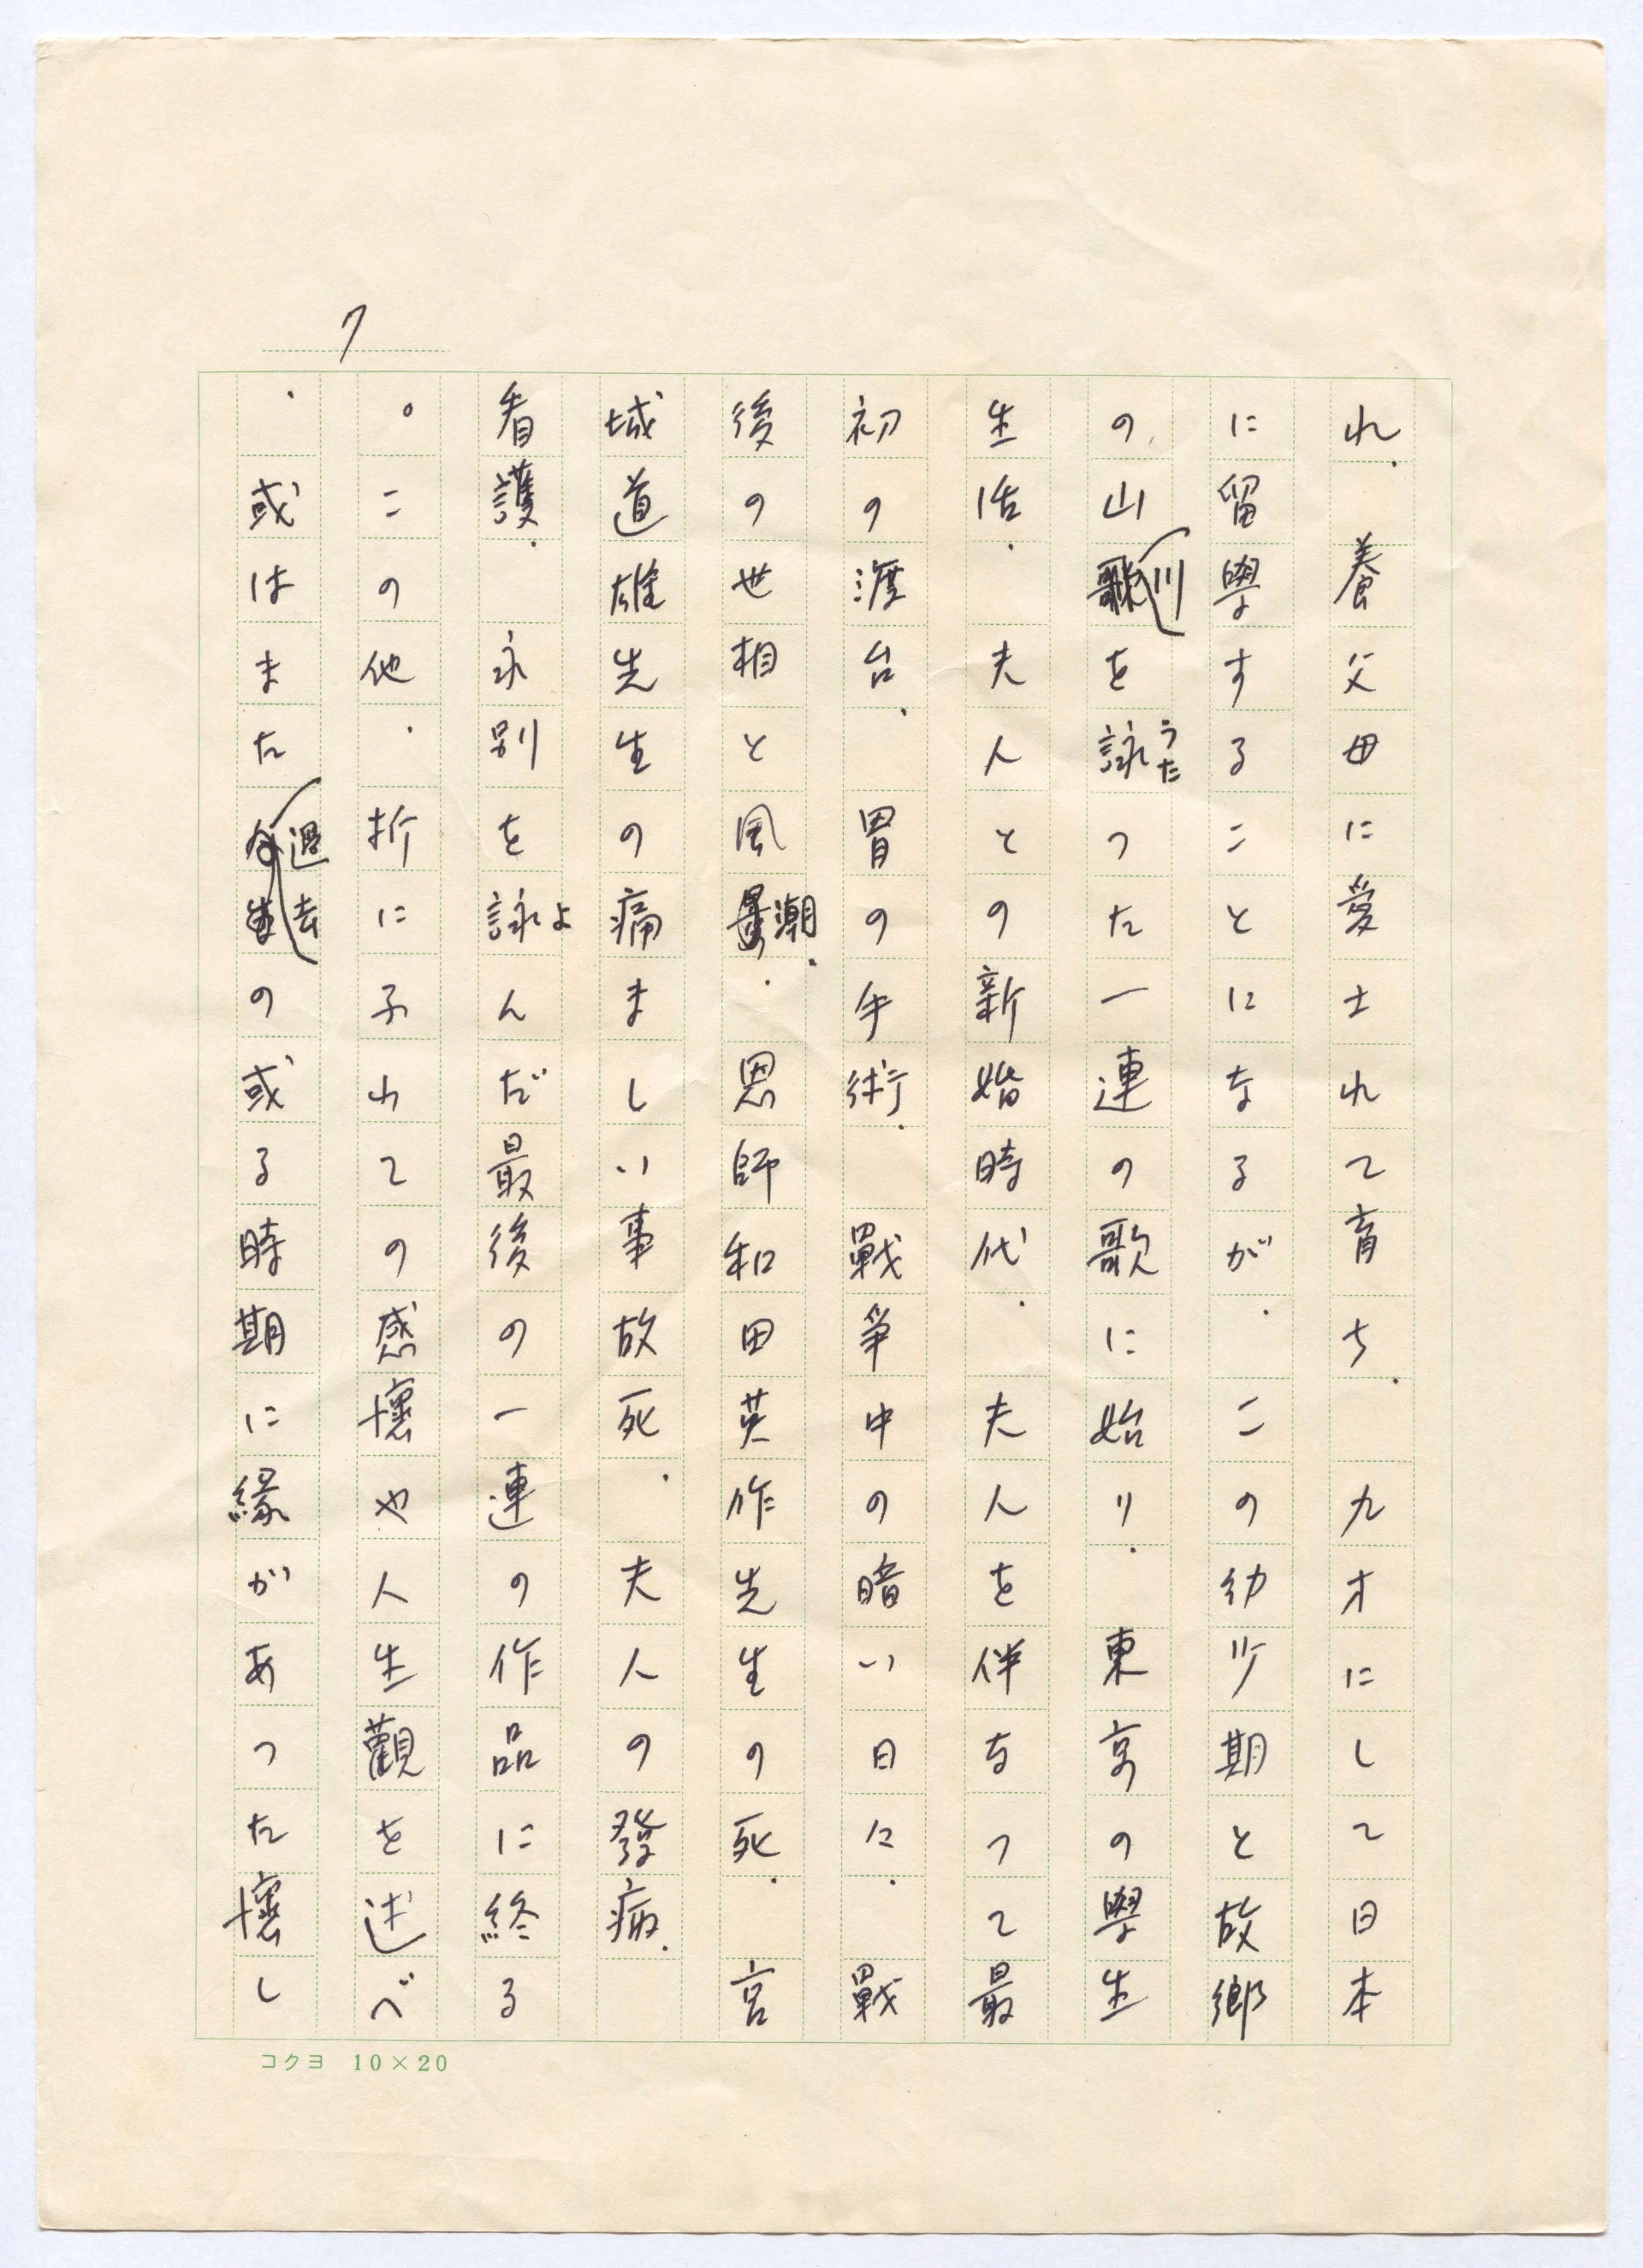 7
れ、養父母に愛士れて育ち、九才にして日本
に留學することになるが、この幼少期と故郷
の山川を詠うたつた一連の歌に始り、東京の學生
生活、夫人との新婚時代、夫人を伴なつて最
初の渡台、胃の手術、戰争中の暗い日々、戰
後の世相と風潮、恩師和田英作先生の死、宮
城道雄先生の痛ましい事故死、夫人の發病、
看護、永別を詠よんだ最後の一連の作品に終る
。この他、折に予れての感壞や人生觀を述べ
、或はまた過去の或る時期に縁があつた壞し
コクヨ 10×20